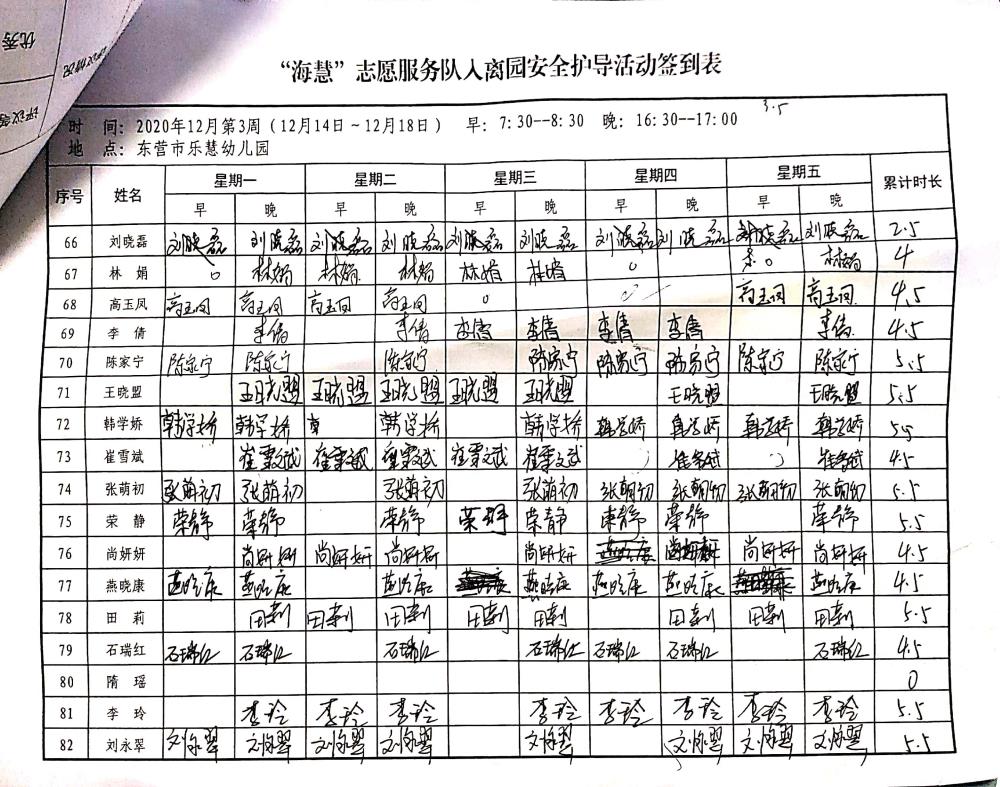 优秀
“海慧”志愿服务队入离园安全护导活动签到表
3.5
时 间：2020年12月第3周（12月14日～12月18日） 早：7:30--8:30 晚：16:30--17:00
地 点：东营市乐慧幼儿园
序号 姓名 星期一 星期二 星期三 星期四 星期五 累计时长
早 晚 早 晚 早 晚 早 晚 早 晚
66 刘晓磊 刘晓磊 刘晓磊 刘晓磊 刘晓磊 刘晓磊 刘晓磊 刘晓磊 刘晓磊 刘晓磊 刘晓磊 2.5
67 林 娟 0 林娟 林娟 林娟 林娟 林娟 0 0 林娟 4
68 高玉凤 高玉凤 高玉凤 高玉凤 高玉凤 0 0 高玉凤 高玉凤 4.5
69 李 倩 李倩 李倩 李倩 李倩 李倩 李倩 李倩 4.5
70 陈家宁 陈家宁 陈家宁 陈家宁 陈家宁 陈家宁 陈家宁 陈家宁 陈家宁 5.5
71 王晓盟 王晓盟 王晓盟 王晓盟 王晓盟 王晓盟 王晓盟 王晓盟 5.5
72 韩学娇 韩学娇 韩学娇 韩 韩学娇 韩学娇 韩学娇 韩学娇 韩学娇 韩学娇 5.5
73 崔雪斌 崔雪斌 崔雪斌 崔雪斌 崔雪斌 崔雪斌 崔雪斌 崔雪斌 4.5
74 张萌初 张萌初 张萌初 张萌初 张萌初 张萌初 张萌初 张萌初 张萌初 5.5
75 荣 静 荣静 荣静 荣静 荣静 荣静 荣静 荣静 荣静 5.5
76 尚妍妍 尚妍妍 尚妍妍 尚妍妍 尚妍妍 尚妍妍 尚妍妍 尚妍妍 4.5
77 燕晓康 燕晓康 燕晓康 燕晓康 燕晓康 燕晓康 燕晓康 燕晓康 4.5
78 田 莉 田莉 田莉 田莉 田莉 田莉 田莉 田莉 田莉 5.5
79 石瑞红 石瑞红 石瑞红 石瑞红 石瑞红 石瑞红 石瑞红 石瑞红 4.5
80 隋 瑶 0
81 李 玲 李玲 李玲 李玲 李玲 李玲 李玲 李玲 李玲 5.5
82 刘永翠 刘永翠 刘永翠 刘永翠 刘永翠 刘永翠 刘永翠 刘永翠 刘永翠 5.5